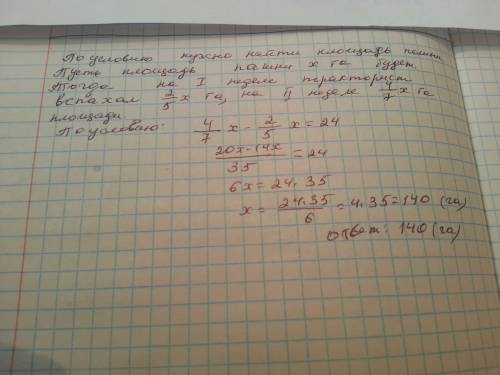 По условию нужно найти площадь пашни
Пусть площадь пашни х га будет.
Тогда на I неделе тракторист
вспахал 2/5 х га, на II неделе 4/7 х га
площади
По условию: 4/7 х - 2/5 х = 24
(20х-14х)/35 = 24
6х = 24.35
х = (24.35)/6 = 4.35 = 140 (га)
Ответ: 140 (га)